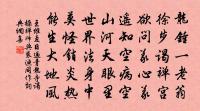 龍鍾一老翁
徐步謁禪宮
欲問義心義
遙知空病空
山河天眼裏
世界法身中
莫怪銷炎熱
能生大地風
王維夏日過青龍寺謁
操禪師與裴迪同作詞
典網集